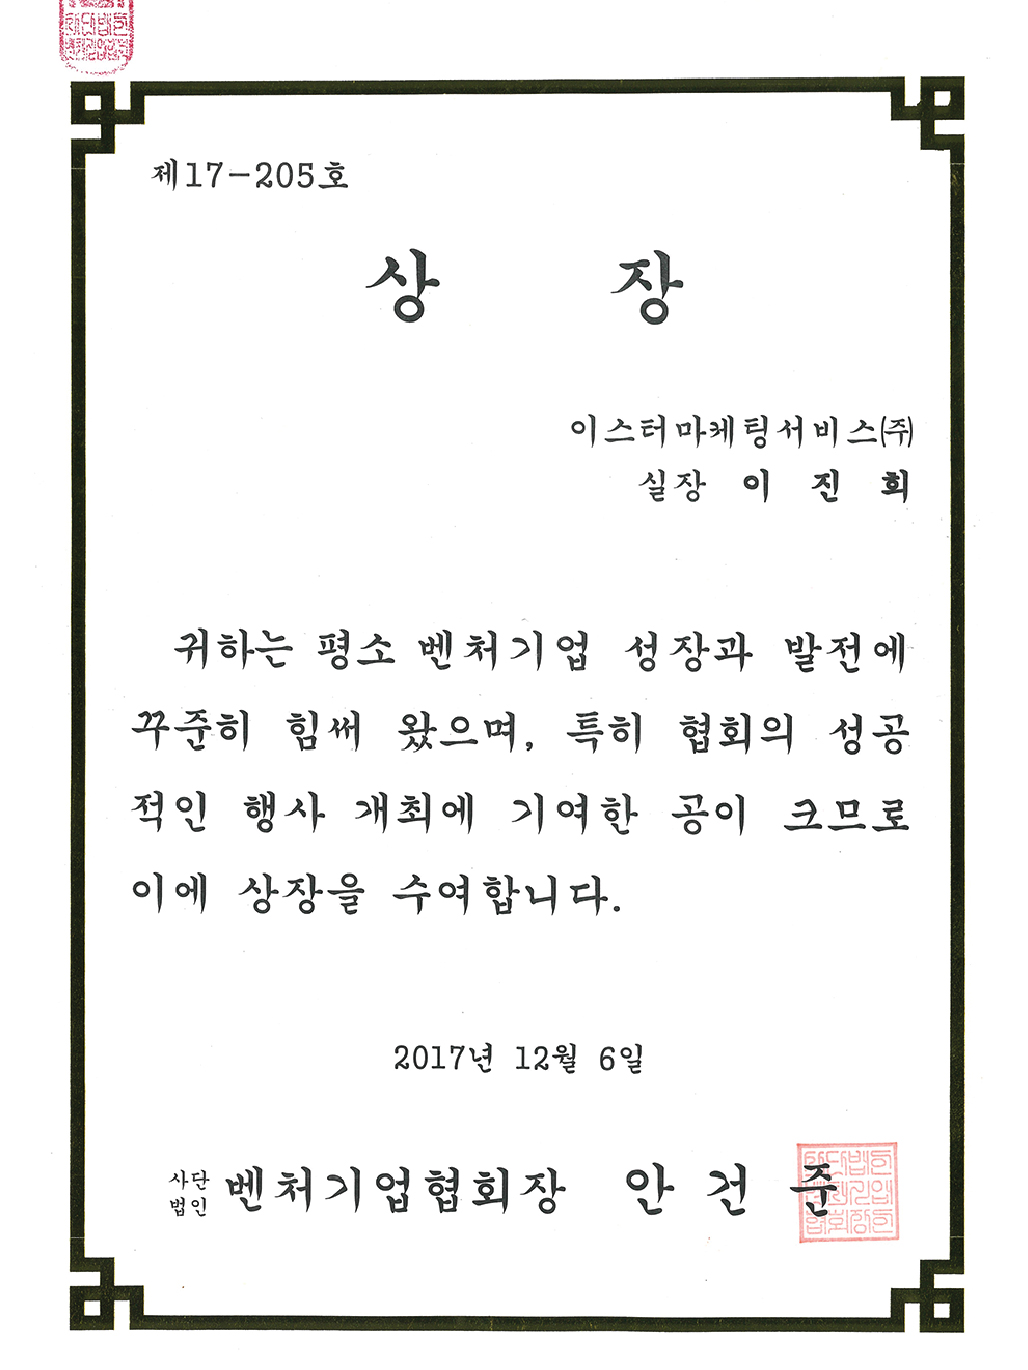 제17-205호
상 장
이스터마케팅서비스(주)
실장 이 진 희
귀하는 평소 벤처기업 성장과 발전에
꾸준히 힘써 왔으며, 특히 협회의 성공
적인 행사 개최에 기여한 공이 크므로
이에 상장을 수여합니다.
2017년 12월 6일
사단
법인 벤처기업협회장 안 건 준